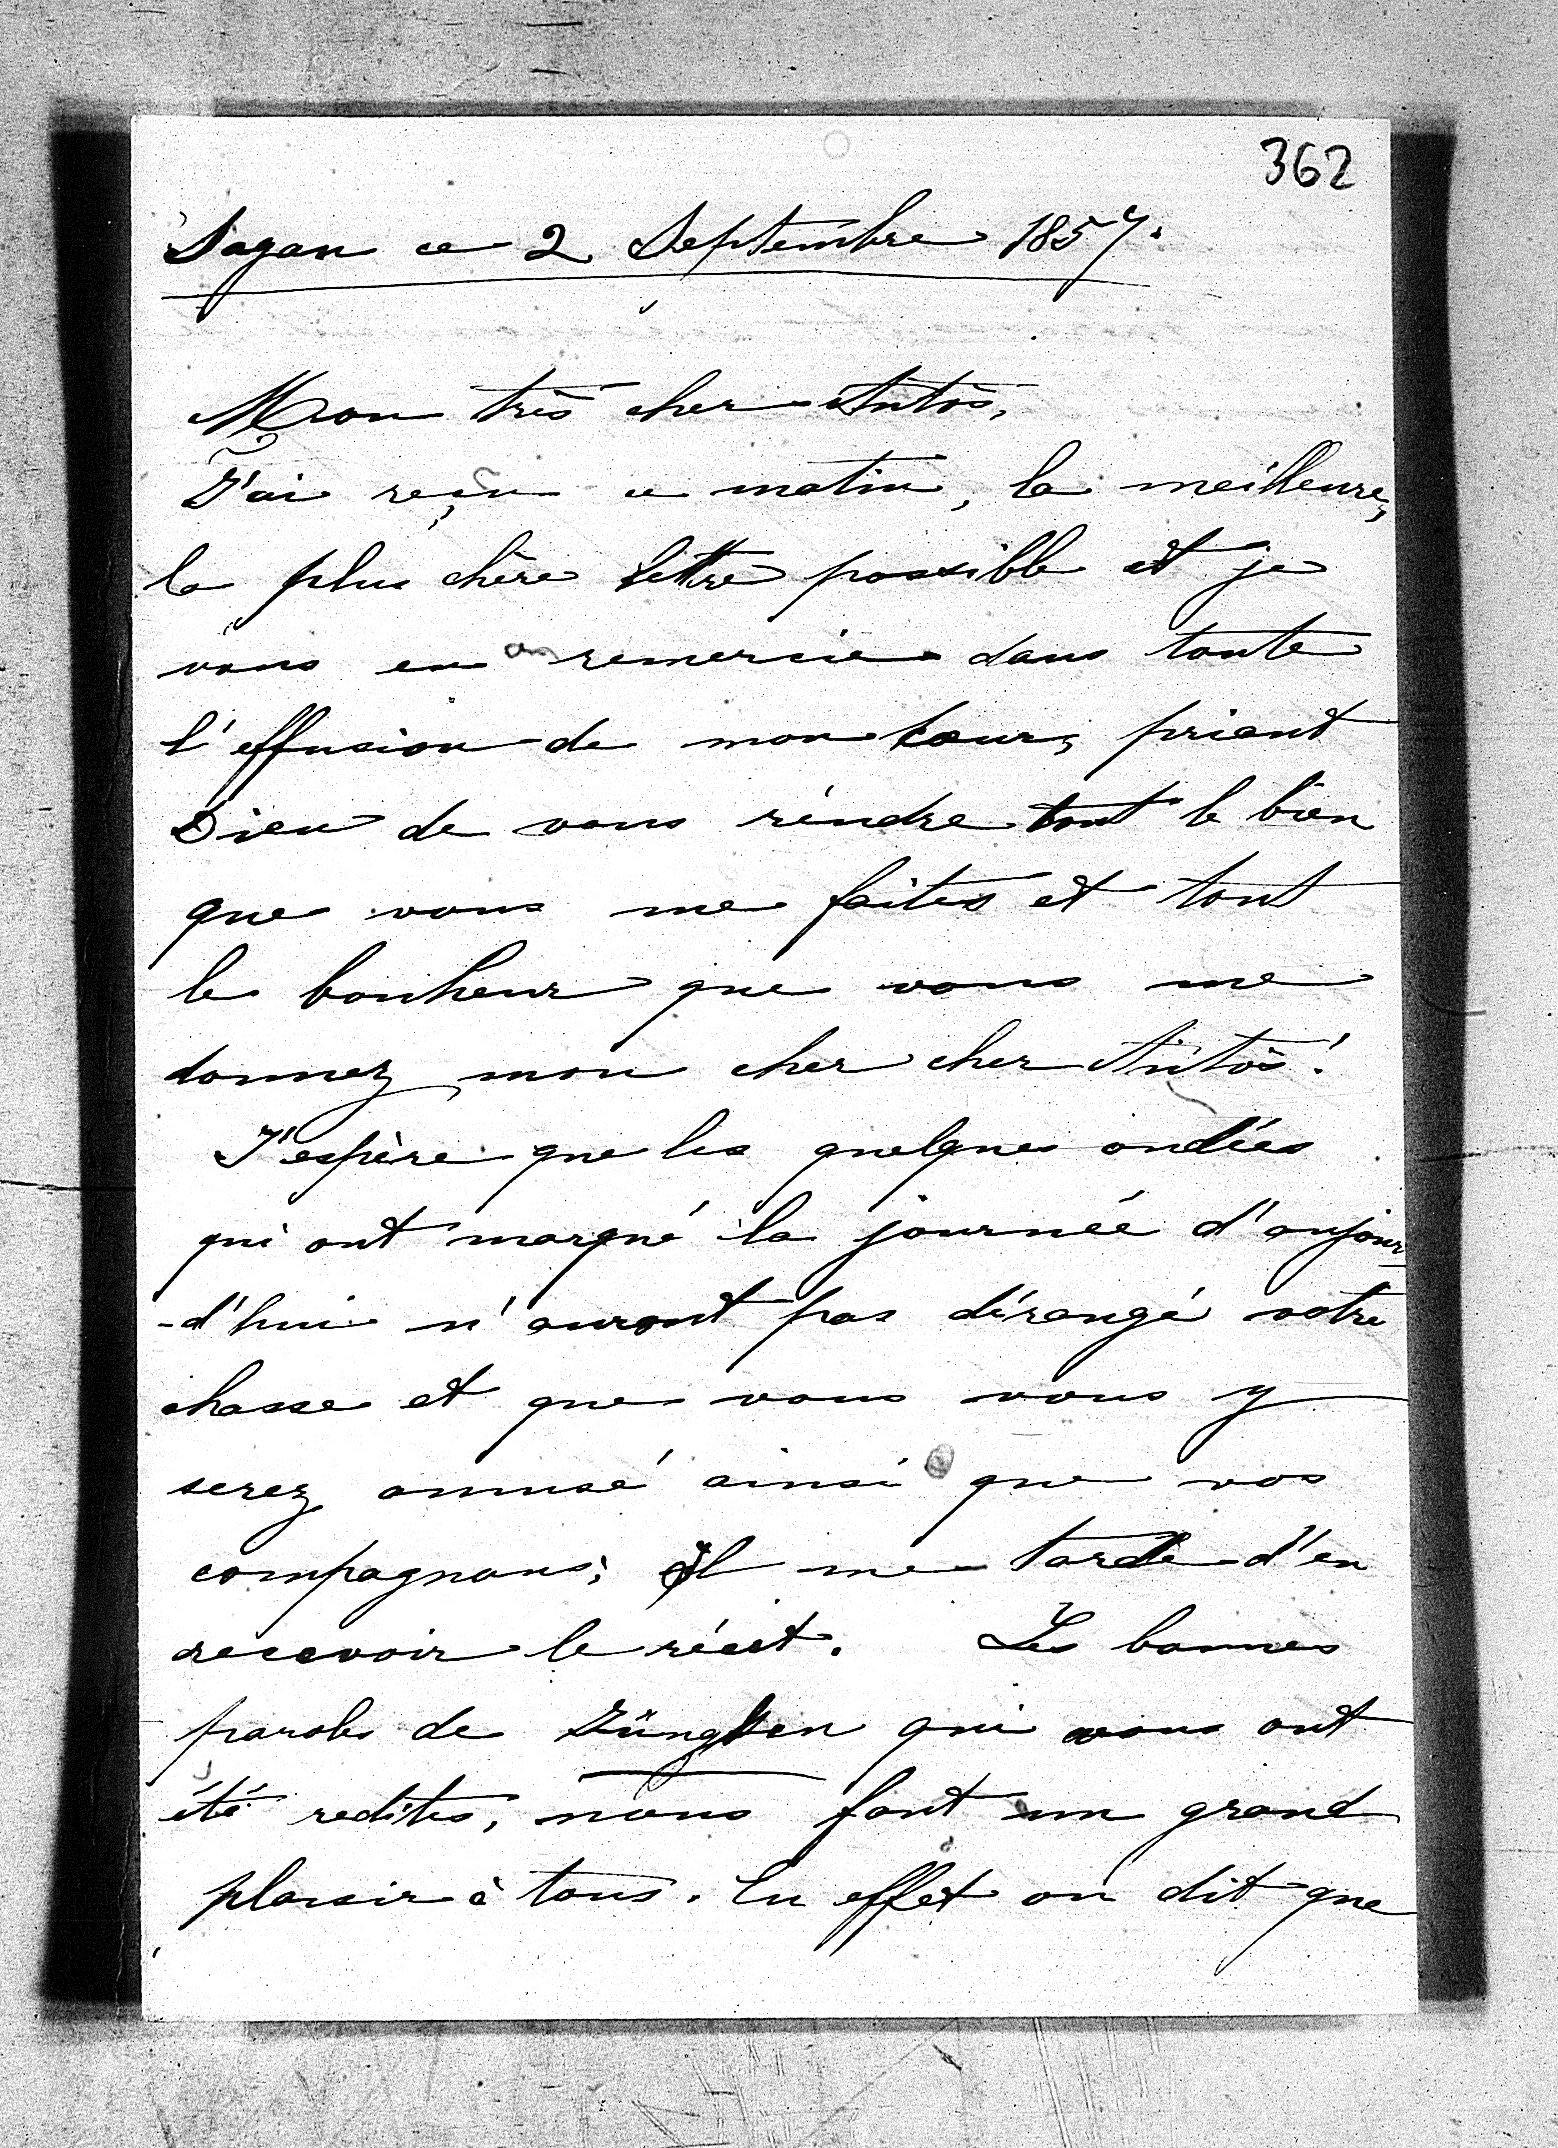 362
Sagan ce 2 Septembre 1857.
Mon très cher Antòs,
J'ai reçu ce matin, la meilleure,
la plus chère lettre possible et je
vous en remercie dans toute
l'effusion de mon coeur, priant
Dieu de vous rendre tout le bien
que vous me faites et tout
le bonheur que vous me
donnez, mon cher cher Antòs!
J'espère que les quelques ondées
qui ont marqué la journée d'aujour
-d'hui n'auront pas dérangé votre
chasse et que vous vous y
serez amusé ainsi que vos
compagnons; Il me tarde d'en
recevoir le récit. Les bonnes
paroles de Züngken qui vous ont
été redites, nous font un grand
plaisir à tous. En effet on dit que